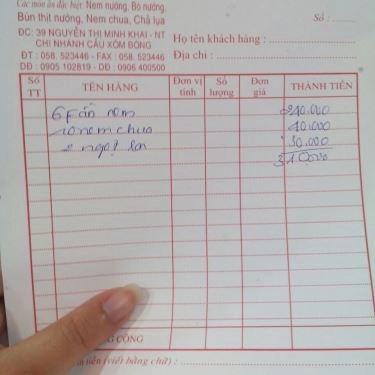 Các món ăn đặc biệt: Nem nướng, Bò nướng,
Bún thịt nướng, Nem chua, Chả lụa
ĐC: 39 NGUYỄN THỊ MINH KHAI - NT
CHI NHÁNH CẦU XÓM BÓNG
ĐT : 058. 523446 - FAX : 058. 523446
DĐ : 0905 102819 - DĐ : 0906 400500
Số :
Họ tên khách hàng :
Địa chỉ :
Số TT TÊN HÀNG Đơn vị tính Số lượng Đơn giá THÀNH TIỀN
6 Fần nem 240.000
10 nem chua 40.000
2 ngọt lon 30.000
310.000
CỘNG
tiền (viết bằng chữ) :